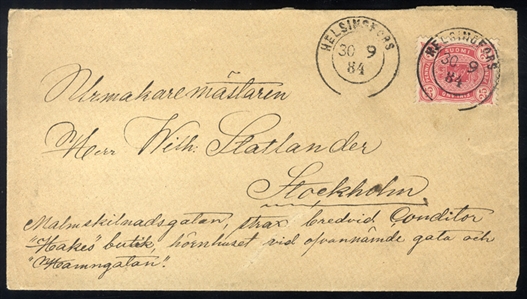 HELSINGFORS
30 9
84
HELSINGFORS
30 9
84
SUOMI
Urmakaremästaren
Herr Wilh. Statlander
Stockholm
Malmskilnadsgatan, strax bredvid Conditor
"Hakes" butik, hörnhuset vid ofvannämde gata och
"Hamngatan".